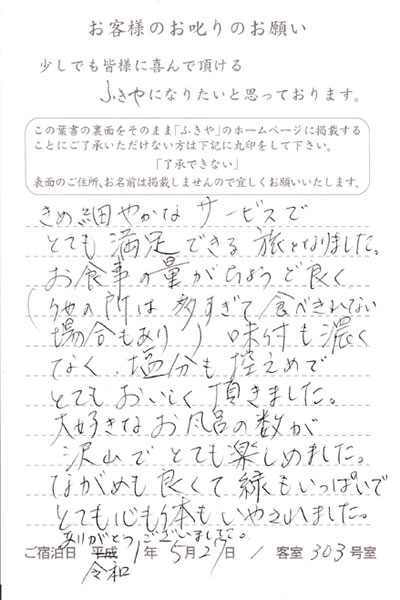 お客様のお叱りのお願い
少しでも皆様に喜んで頂ける
ふきやになりたいと思っております。
この葉書の裏面をそのまま「ふきや」のホームページに掲載する
ことにご了承いただけない方は下記に丸印をして下さい。
「了承できない」
表面のご住所、お名前は掲載しませんので宜しくお願いいたします。
きめ細やかな サービスで
とても 満足できる 旅となりました。
お食事の量がちょうど良く
(他の所は多すぎて食べきれない
場合もあり) 味付も濃く
なく、塩分も控えめで
とてもおいしく頂きました。
大好きなお風呂の数が
沢山でとても楽しめました。
ながめも良くて緑もいっぱいで
とても心も体もいやされました。
ありがとうございました。
ご宿泊日 平成 1年 5月27日 / 客室 303号室
令和